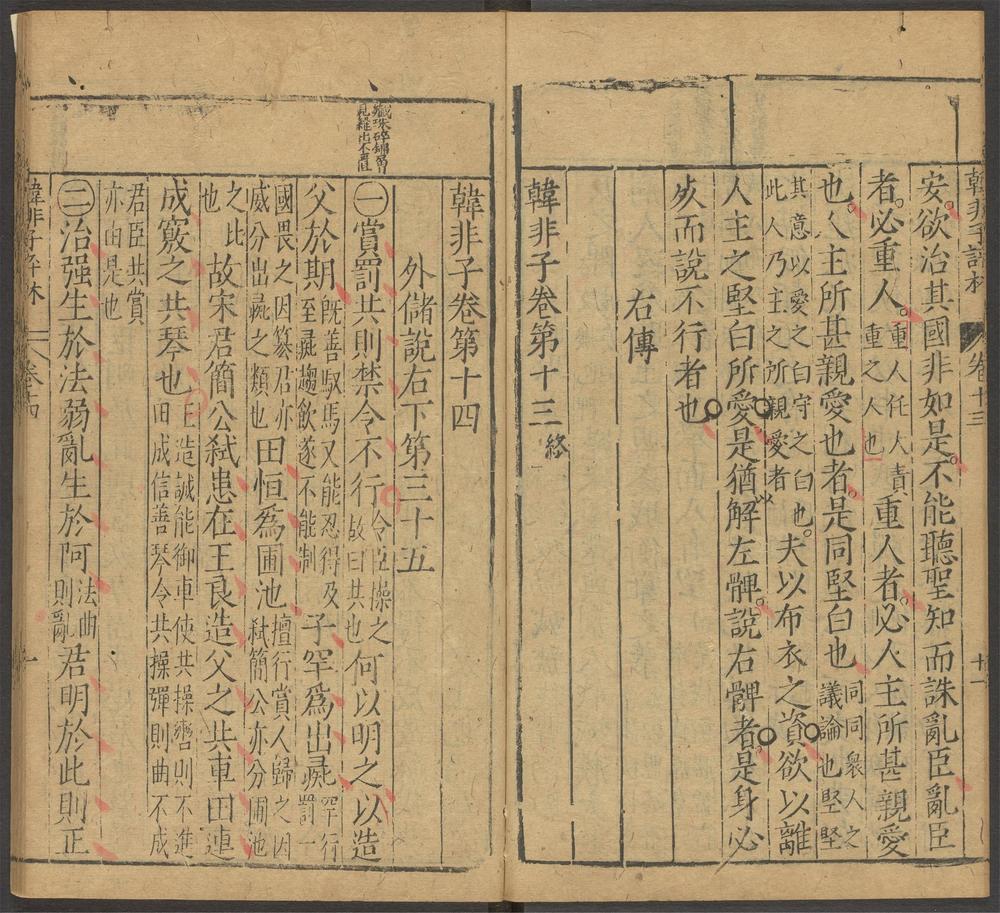 韓非子評林 卷十三 十一
安欲治其國非如是不能聽聖知而誅亂臣亂臣
者必重人重人任人責重之人也重人者必人主所甚親愛
也人主所甚親愛也者是同堅白也同同衆人之議論也堅堅
其意以愛之白守之白也此人乃主之所親愛者夫以布衣之資欲以離
人主之堅白所愛是猶解左髀說右髀者是身必
死而說不行者也
右傳
韓非子卷第十三終
韓非子卷第十四
外儲說右下第三十五
一賞罰共則禁令不行令臣操之故曰共也何以明之以造
父於期旣善馭馬又能忍得及至彘趨飲遂不能制子罕爲出彘罕行罰一
國畏之因篡君亦威分出彘之類也田恒爲圃池擅行賞人歸之因弒簡公亦分圃池
之比也故宋君簡公弒患在王良造父之共車田連
成竅之共琴也王造誠能御車使共操轡則不進田成信善琴令共操彈則曲不成
君臣共賞亦由是也
二治强生於法弱亂生於阿法曲則亂君明於此則正
韓非子評林 卷十四 一